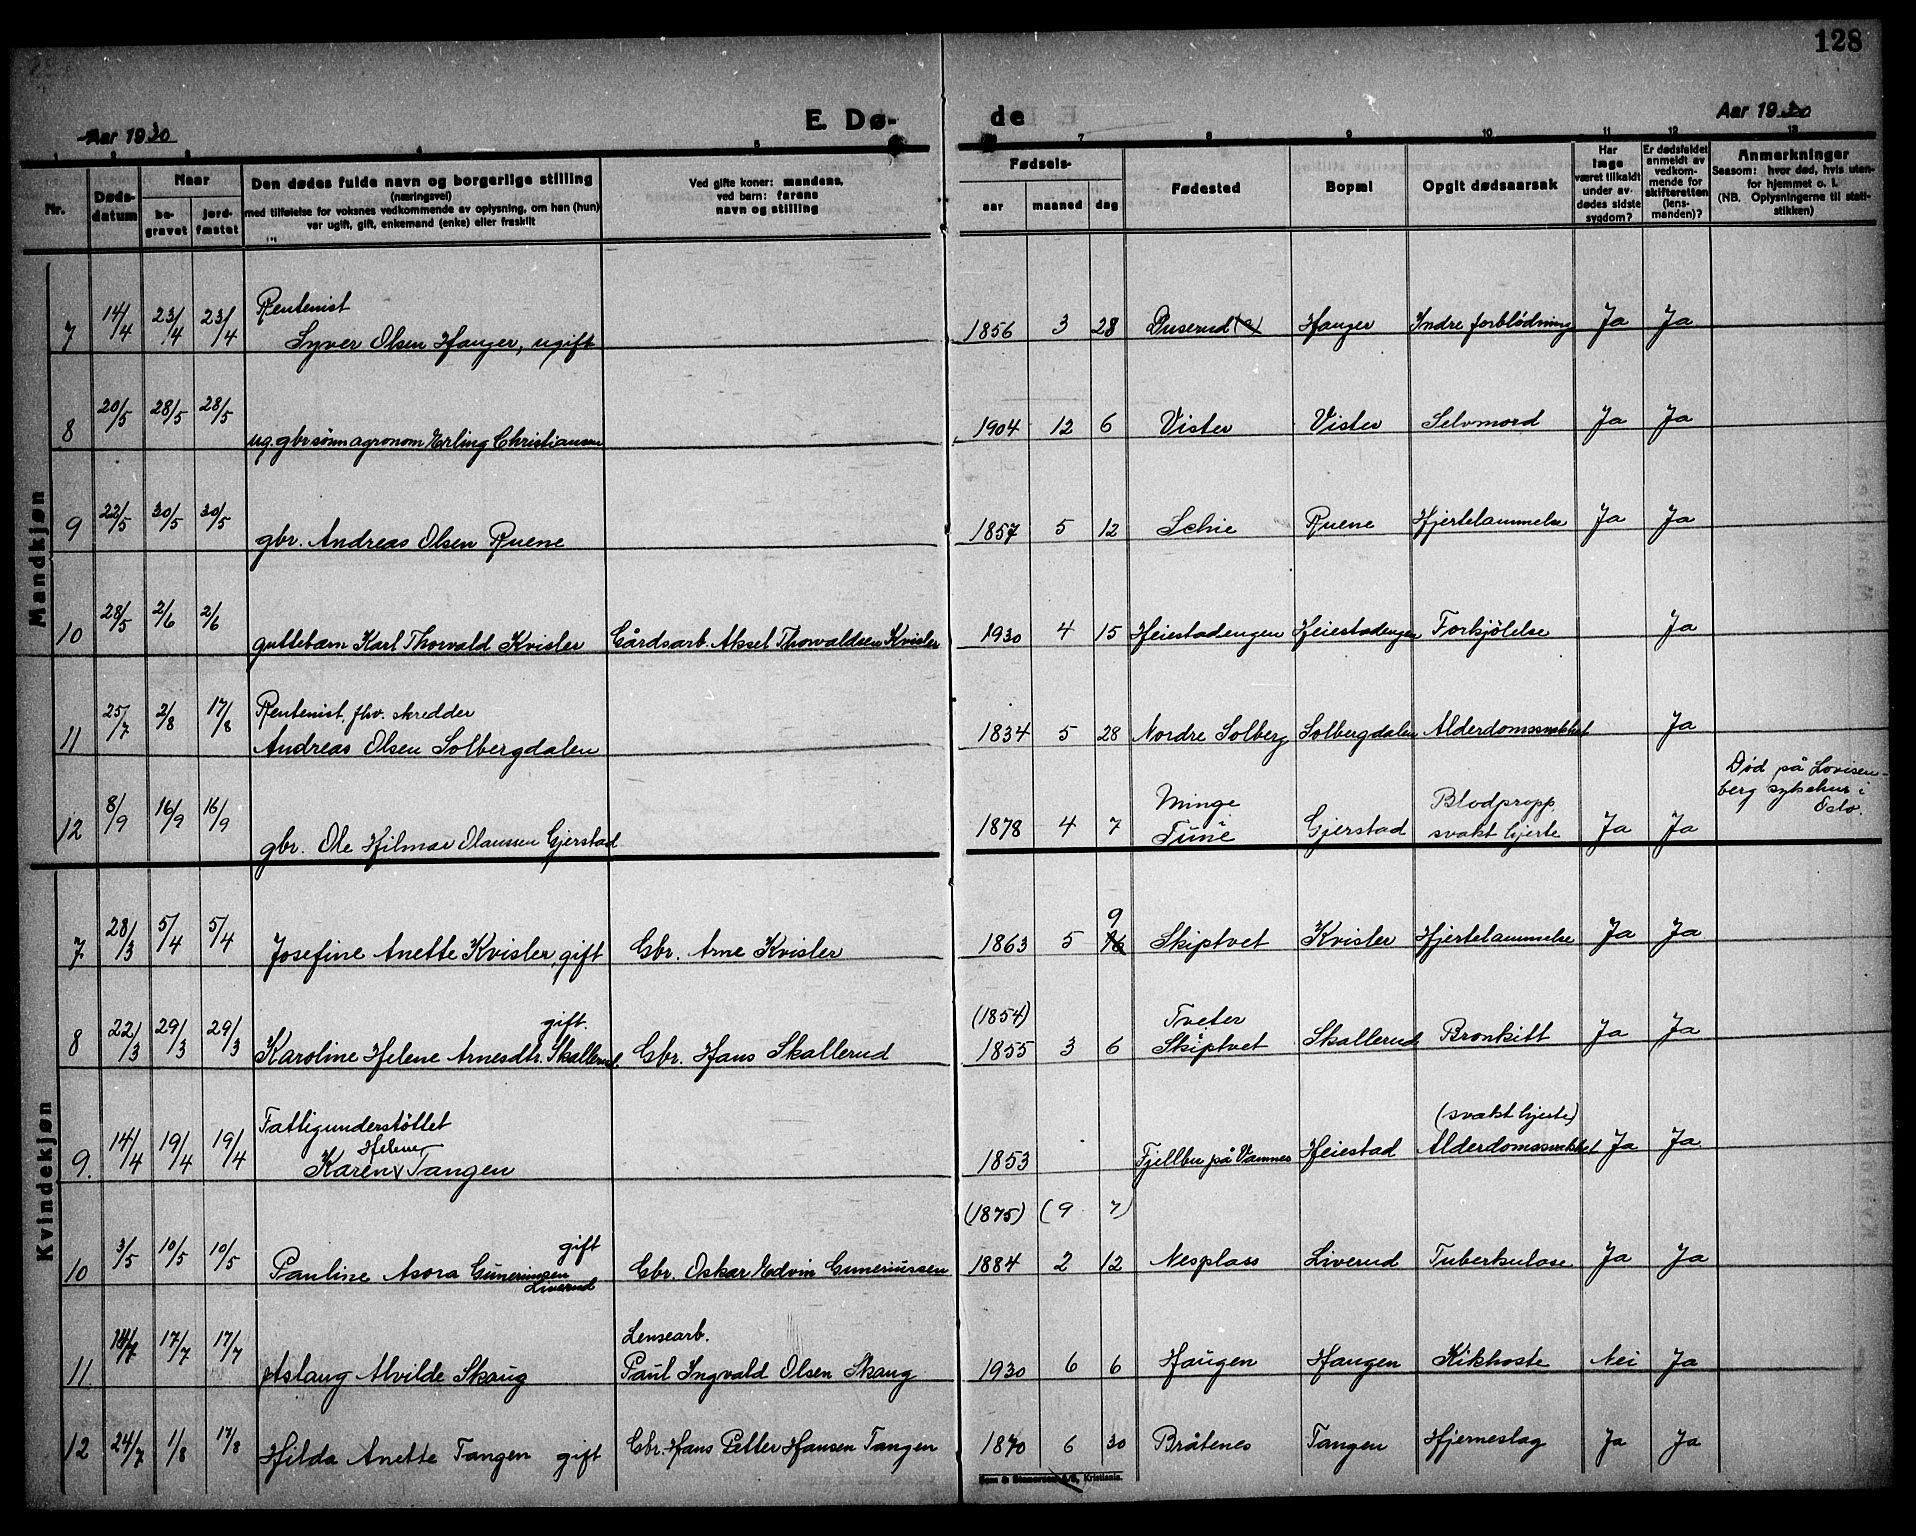 128
Aar 1930 E. Dø- de Aar 1930
1 2 3 4 5 7 8 9 10 11 12 13
Nr. Døds-datum Naar be-gravet jord-fæstet
Den dødes fulde navn og borgerlige stilling
(næringsvei)
med tilføielse for voksnes vedkommende av oplysning, om han (hun)
var ugift, gift, enkemand (enke) eller fraskilt
Ved gifte koner: mandens,
ved barn: farens
navn og stilling
Fødsels- aar maaned dag
Fødested
Bopæl
Opgit dødsaarsak
Har læge været tilkaldt under av-dødes sidste sygdom?
Er dødsfaldet anmeldt av vedkom-mende for skifteretten (lens-manden)?
Anmerkninger
Saasom: hvor død, hvis uten-
for hjemmet o. l.
(NB. Oplysningerne til stati-
stikken)
Mandkjøn
Rentenist
7 14/4 23/4 23/4 Syver Olsen Hauger, ugift 1856 3 28 Duserud (e) Hauger Indre forblødning Ja Ja
8 20/5 28/5 28/5 ug. gbr sønn agronom Erling Christiansen 1904 12 6 Vister Vister Selvmord Ja Ja
9 22/5 30/5 30/5 gbr. Andreas Olsen Ruene 1857 5 12 Schie Ruene Hjertelammelse Ja Ja
10 28/5 2/6 2/6 guttebarn Karl Thorvald Kvisler Gårdsarb. Aksel Thorvaldsen Kvisler 1930 4 15 Heiestadengen Heiestadengen Forkjølelse Ja
Rentenist, fhv. skredder
11 25/7 2/8 17/8 Andreas Olsen Solbergdalen 1834 5 28 Nordre Solberg Solbergdalen Alderdomssvakhet Ja
Død på Lovisen-
berg sykehus i
Oslo.
Minge Blodpropp
12 8/9 16/9 16/9 gbr. Ole Hilmar Olaussen Gjerstad 1878 4 7 Tune Gjerstad svakt hjerte Ja Ja
Kvindekjøn
9
7 28/3 5/4 5/4 Josefine Anette Kvisler, gift Gbr. Arne Kvisler 1863 5 16 Skiptvet Kvisler Hjertelammelse Ja Ja
gift. (1854) Tveter
8 22/3 29/3 29/3 Karoline Helene Arnesdtr. Skallerud, Gbr. Hans Skallerud 1855 3 6 Skiptvet Skallerud Bronkitt Ja Ja
Fattigunderstøttet (svakt hjerte)
Helene
9. 14/4 19/4 19/4 Karen Tangen 1853 Fjellbu på Vamnes Heiestad Alderdomssvakhet Ja Ja
gift (1875) (9 7)
10 3/5 10/5 10/5 Pauline Asora Guneriusen Gbr. Oskar Edvin Guneriussen 1884 2 12 Nesplass Liverud Tuberkulose Ja Ja
Liverud
Lensearb.
11 14/7 17/7 17/7 Aslaug Alvilde Skaug Paul Ingvald Olsen Skaug 1930 6 6 Haugen Haugen Kikhoste Nei Ja
12 24/7 1/8 17/8 Hilda Anette Tangen gift Gbr. Hans Petter Hansen Tangen 1870 6 30 Bråtenes Tangen Hjerneslag Ja Ja
A/S, Kristiania.